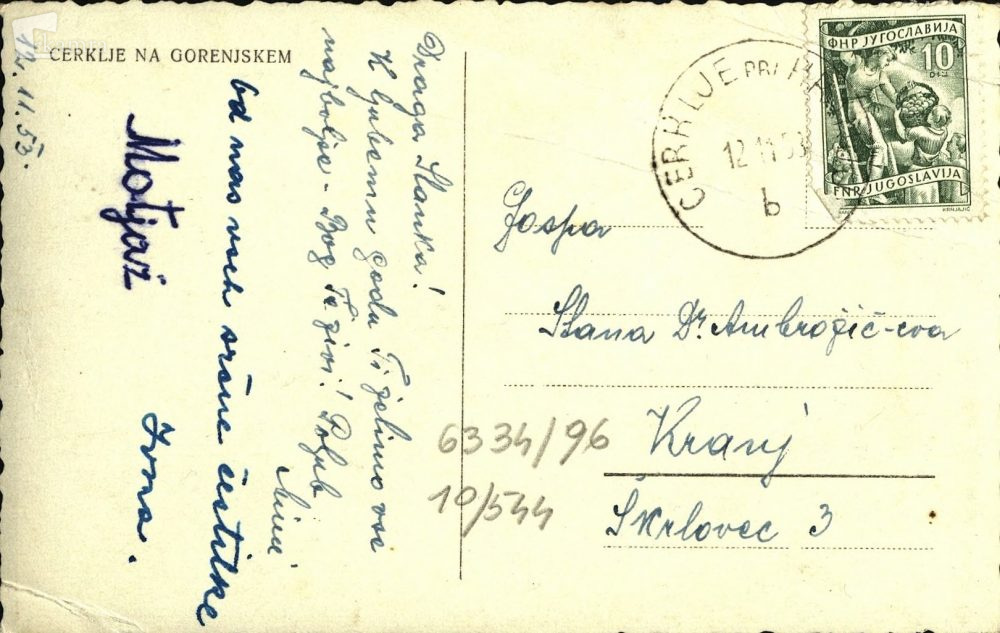 CERKLJE NA GORENJSKEM
12. 11. 53.
Draga Stanka!
K ljubemu godu Ti želimo vse
najboljše - Bog Te živi! Poljub
Mimi
od nas vseh srčne čestitke
Ivma.
Motjaž
CERKLJE PRI
12 11 53
b
ФНР ЈУГОСЛАВИЈА
10
DIN
FNR JUGOSLAVIJA
KRNJAJIĆ
Gospa
Stana Dr. Ambrožič-eva
Kranj
Škrlovec 3
6334/96
10/544